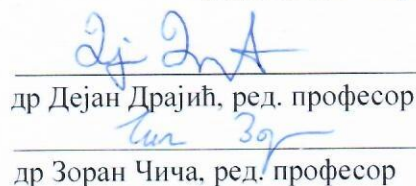 др Дејан Драјић, ред. професор
др Зоран Чича, ред. професор